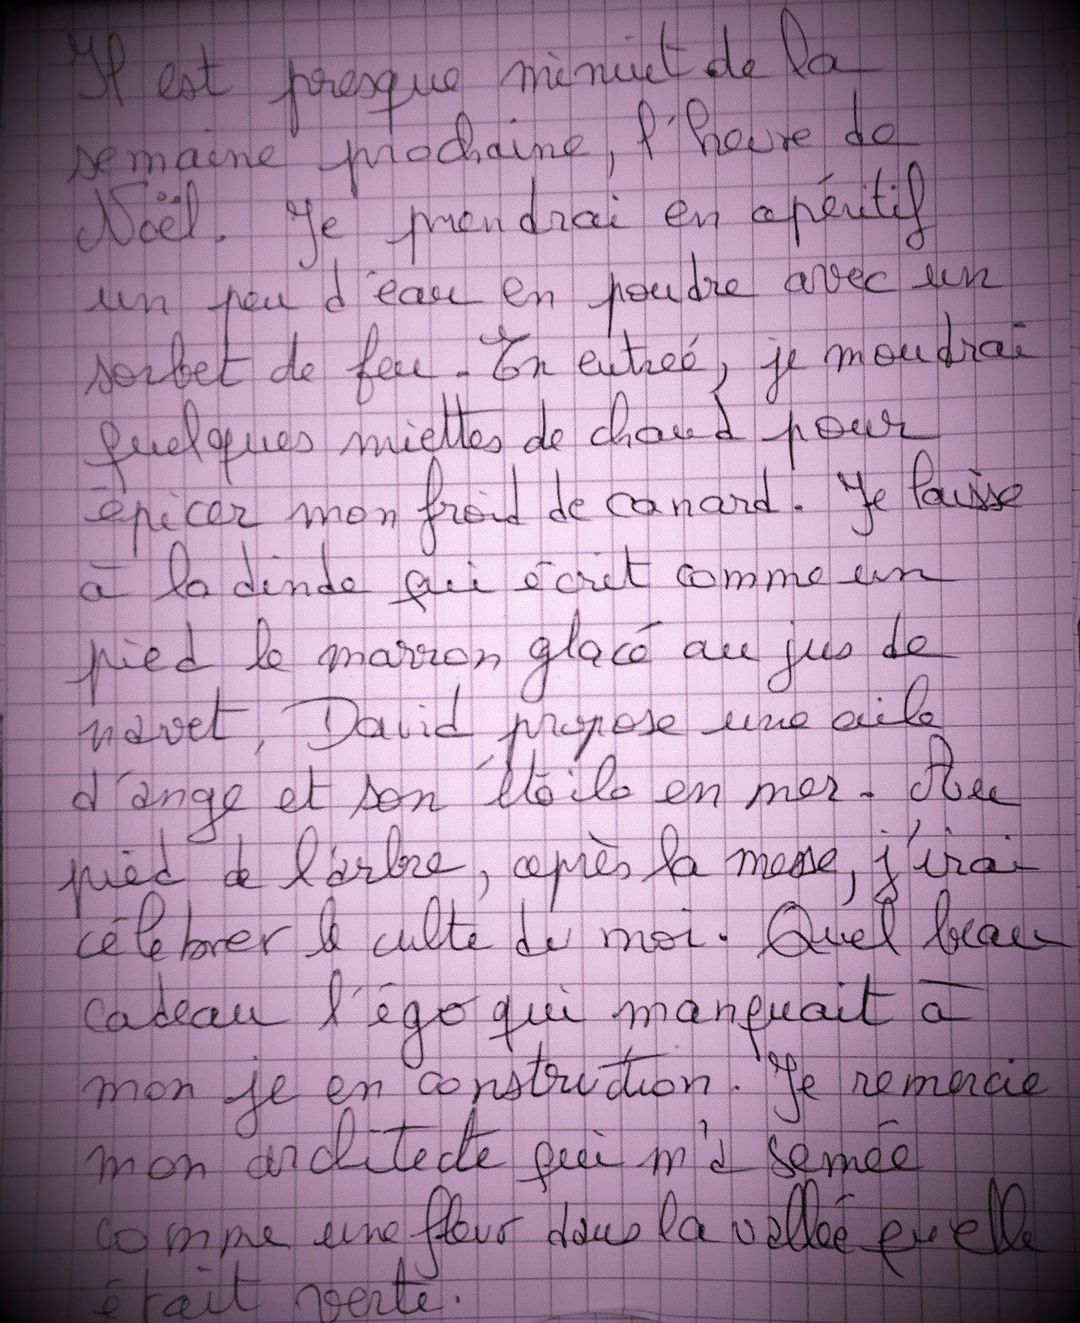 Il est presque minuit de la
semaine prochaine, l'heure de
Noël. Je prendrai en apéritif
un peu d'eau en poudre avec un
sorbet de feu. En entreé, je moudrai
quelques miettes de chaud pour
épicer mon froid de canard. Je laisse
à la dinde qui écrit comme un
pied le marron glacé au jus de
navet, David propose une aile
d'ange et son étoile en mer. Au
pied de l'arbre, après la messe, j'irai
célébrer le culte du moi. Quel beau
cadeau l'égo qui manquait à
mon je en construction. Je remercie
mon architecte qui m'a semée
comme une fleur dans la valleé qu'elle
était verte.